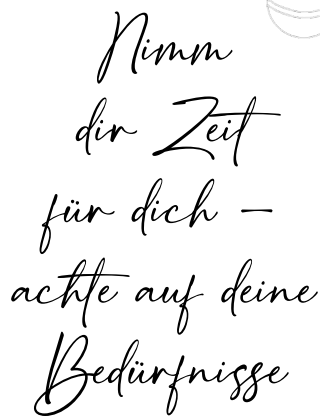 Nimm
dir Zeit
für dich –
achte auf deine
Bedürfnisse